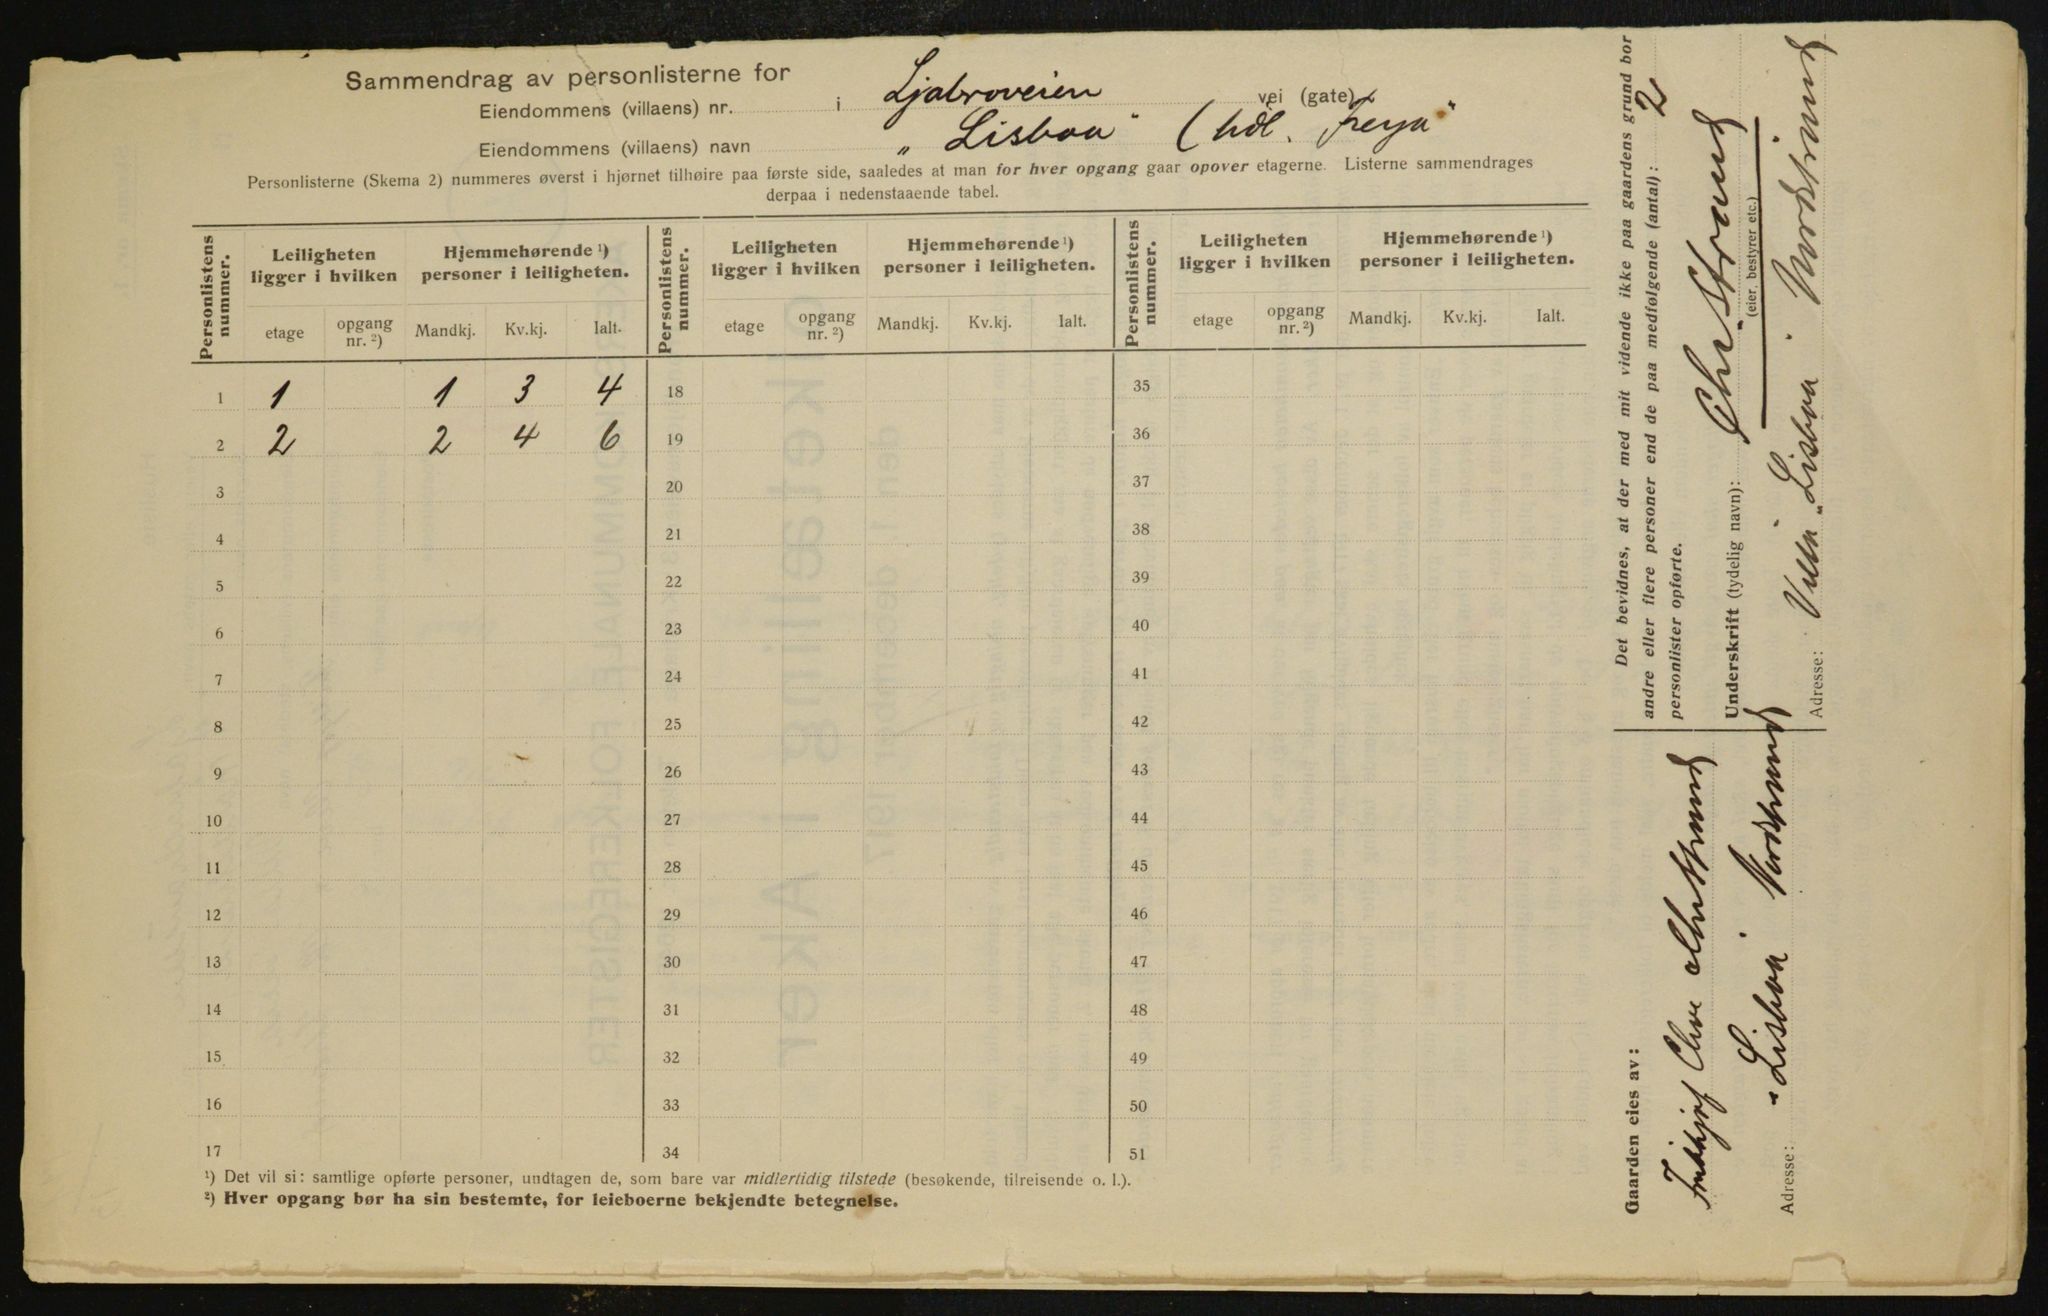 Sammendrag av personlisterne for
Eiendommens (villaens) nr. i Ljabroveien vei (gate)
Eiendommens (villaens) navn „Lisboa" (hdl. Freya"
Personlisterne (Skema 2) nummeres øverst i hjørnet tilhøire paa første side, saaledes at man for hver opgang gaar opover etagerne. Listerne sammendrages
derpaa i nedenstaaende tabel.
Personlistens nummer. Leiligheten ligger i hvilken Hjemmehørende ¹) personer i leiligheten. Personlistens nummer. Leiligheten ligger i hvilken Hjemmehørende ¹) personer i leiligheten. Personlistens nummer. Leiligheten ligger i hvilken Hjemmehørende ¹) personer i leiligheten.
etage opgang nr. ²) Mandkj. Kv.kj. Ialt. etage opgang nr. ²) Mandkj. Kv.kj. Ialt. etage opgang nr. ²) Mandkj. Kv.kj. Ialt.
1 1 1 3 4 18 35
2 2 2 4 6 19 36
3 20 37
4 21 38
5 22 39
6 23 40
7 24 41
8 25 42
9 26 43
10 27 44
11 28 45
12 29 46
13 30 47
14 31 48
15 32 49
16 33 50
17 34 51
¹) Det vil si: samtlige opførte personer, undtagen de, som bare var midlertidig tilstede (besøkende, tilreisende o. l.).
²) Hver opgang bør ha sin bestemte, for leieboerne bekjendte betegnelse.
Det bevidnes, at der med mit vidende ikke paa gaardens grund bor
andre eller flere personer end de paa medfølgende (antal): 2
personlister opførte.
Underskrift (tydelig navn): Chr. Strand
(eier, bestyrer etc.)
Adresse: Villa „Lisboa" Nordstrand
Gaarden eies av:
Fridthjof Chr
Adresse: „Lisboa" Nordstrand